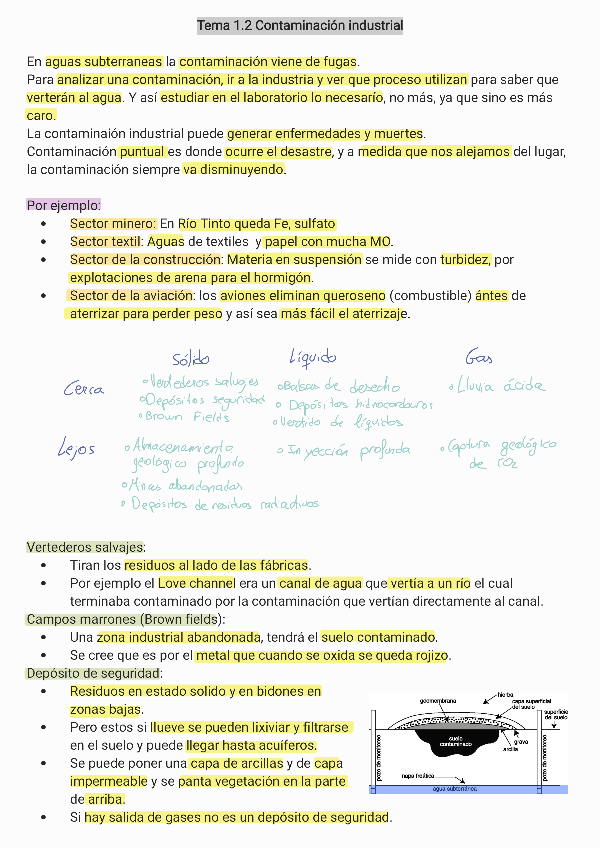 Tema 1.2 Contaminación industrial
En aguas subterraneas la contaminación viene de fugas.
Para analizar una contaminación, ir a la industria y ver que proceso utilizan para saber que
verterán al agua. Y así estudiar en el laboratorio lo necesario, no más, ya que sino es más
caro.
La contaminaión industrial puede generar enfermedades y muertes.
Contaminación puntual es donde ocurre el desastre, y a medida que nos alejamos del lugar,
la contaminación siempre va disminuyendo.
Por ejemplo:
● Sector minero: En Río Tinto queda Fe, sulfato
● Sector textil: Aguas de textiles y papel con mucha MO.
● Sector de la construcción: Materia en suspensión se mide con turbidez, por
explotaciones de arena para el hormigón.
● Sector de la aviación: los aviones eliminan queroseno (combustible) ántes de
aterrizar para perder peso y así sea más fácil el aterrizaje.
Sólido Líquido Gas
Cerca
o Vertederos salvajes o Balsas de desecho o Lluvia ácida
o Depósitos seguridad o Depósitos hidrocarburos
o Brown Fields o Vertido de líquidos
Lejos o Almacenamiento o Inyección profunda o Captura geológica
geológico profundo de CO2
o Minas abandonadas
o Depósitos de residuos radiactivos
Vertederos salvajes:
● Tiran los residuos al lado de las fábricas.
● Por ejemplo el Love channel era un canal de agua que vertía a un río el cual
terminaba contaminado por la contaminación que vertían directamente al canal.
Campos marrones (Brown fields):
● Una zona industrial abandonada, tendrá el suelo contaminado.
● Se cree que es por el metal que cuando se oxida se queda rojizo.
Depósito de seguridad:
● Residuos en estado solido y en bidones en
zonas bajas.
● Pero estos si llueve se pueden lixiviar y filtrarse
en el suelo y puede llegar hasta acuíferos.
● Se puede poner una capa de arcillas y de capa
impermeable y se panta vegetación en la parte
de arriba.
● Si hay salida de gases no es un depósito de seguridad.
hierba
geomembrana
capa superficial
del suelo
superficie
del suelo
suelo
contaminado
grava
arcilla
pozo de monitoreo
pozo de monitoreo
napa freática
agua subterránea